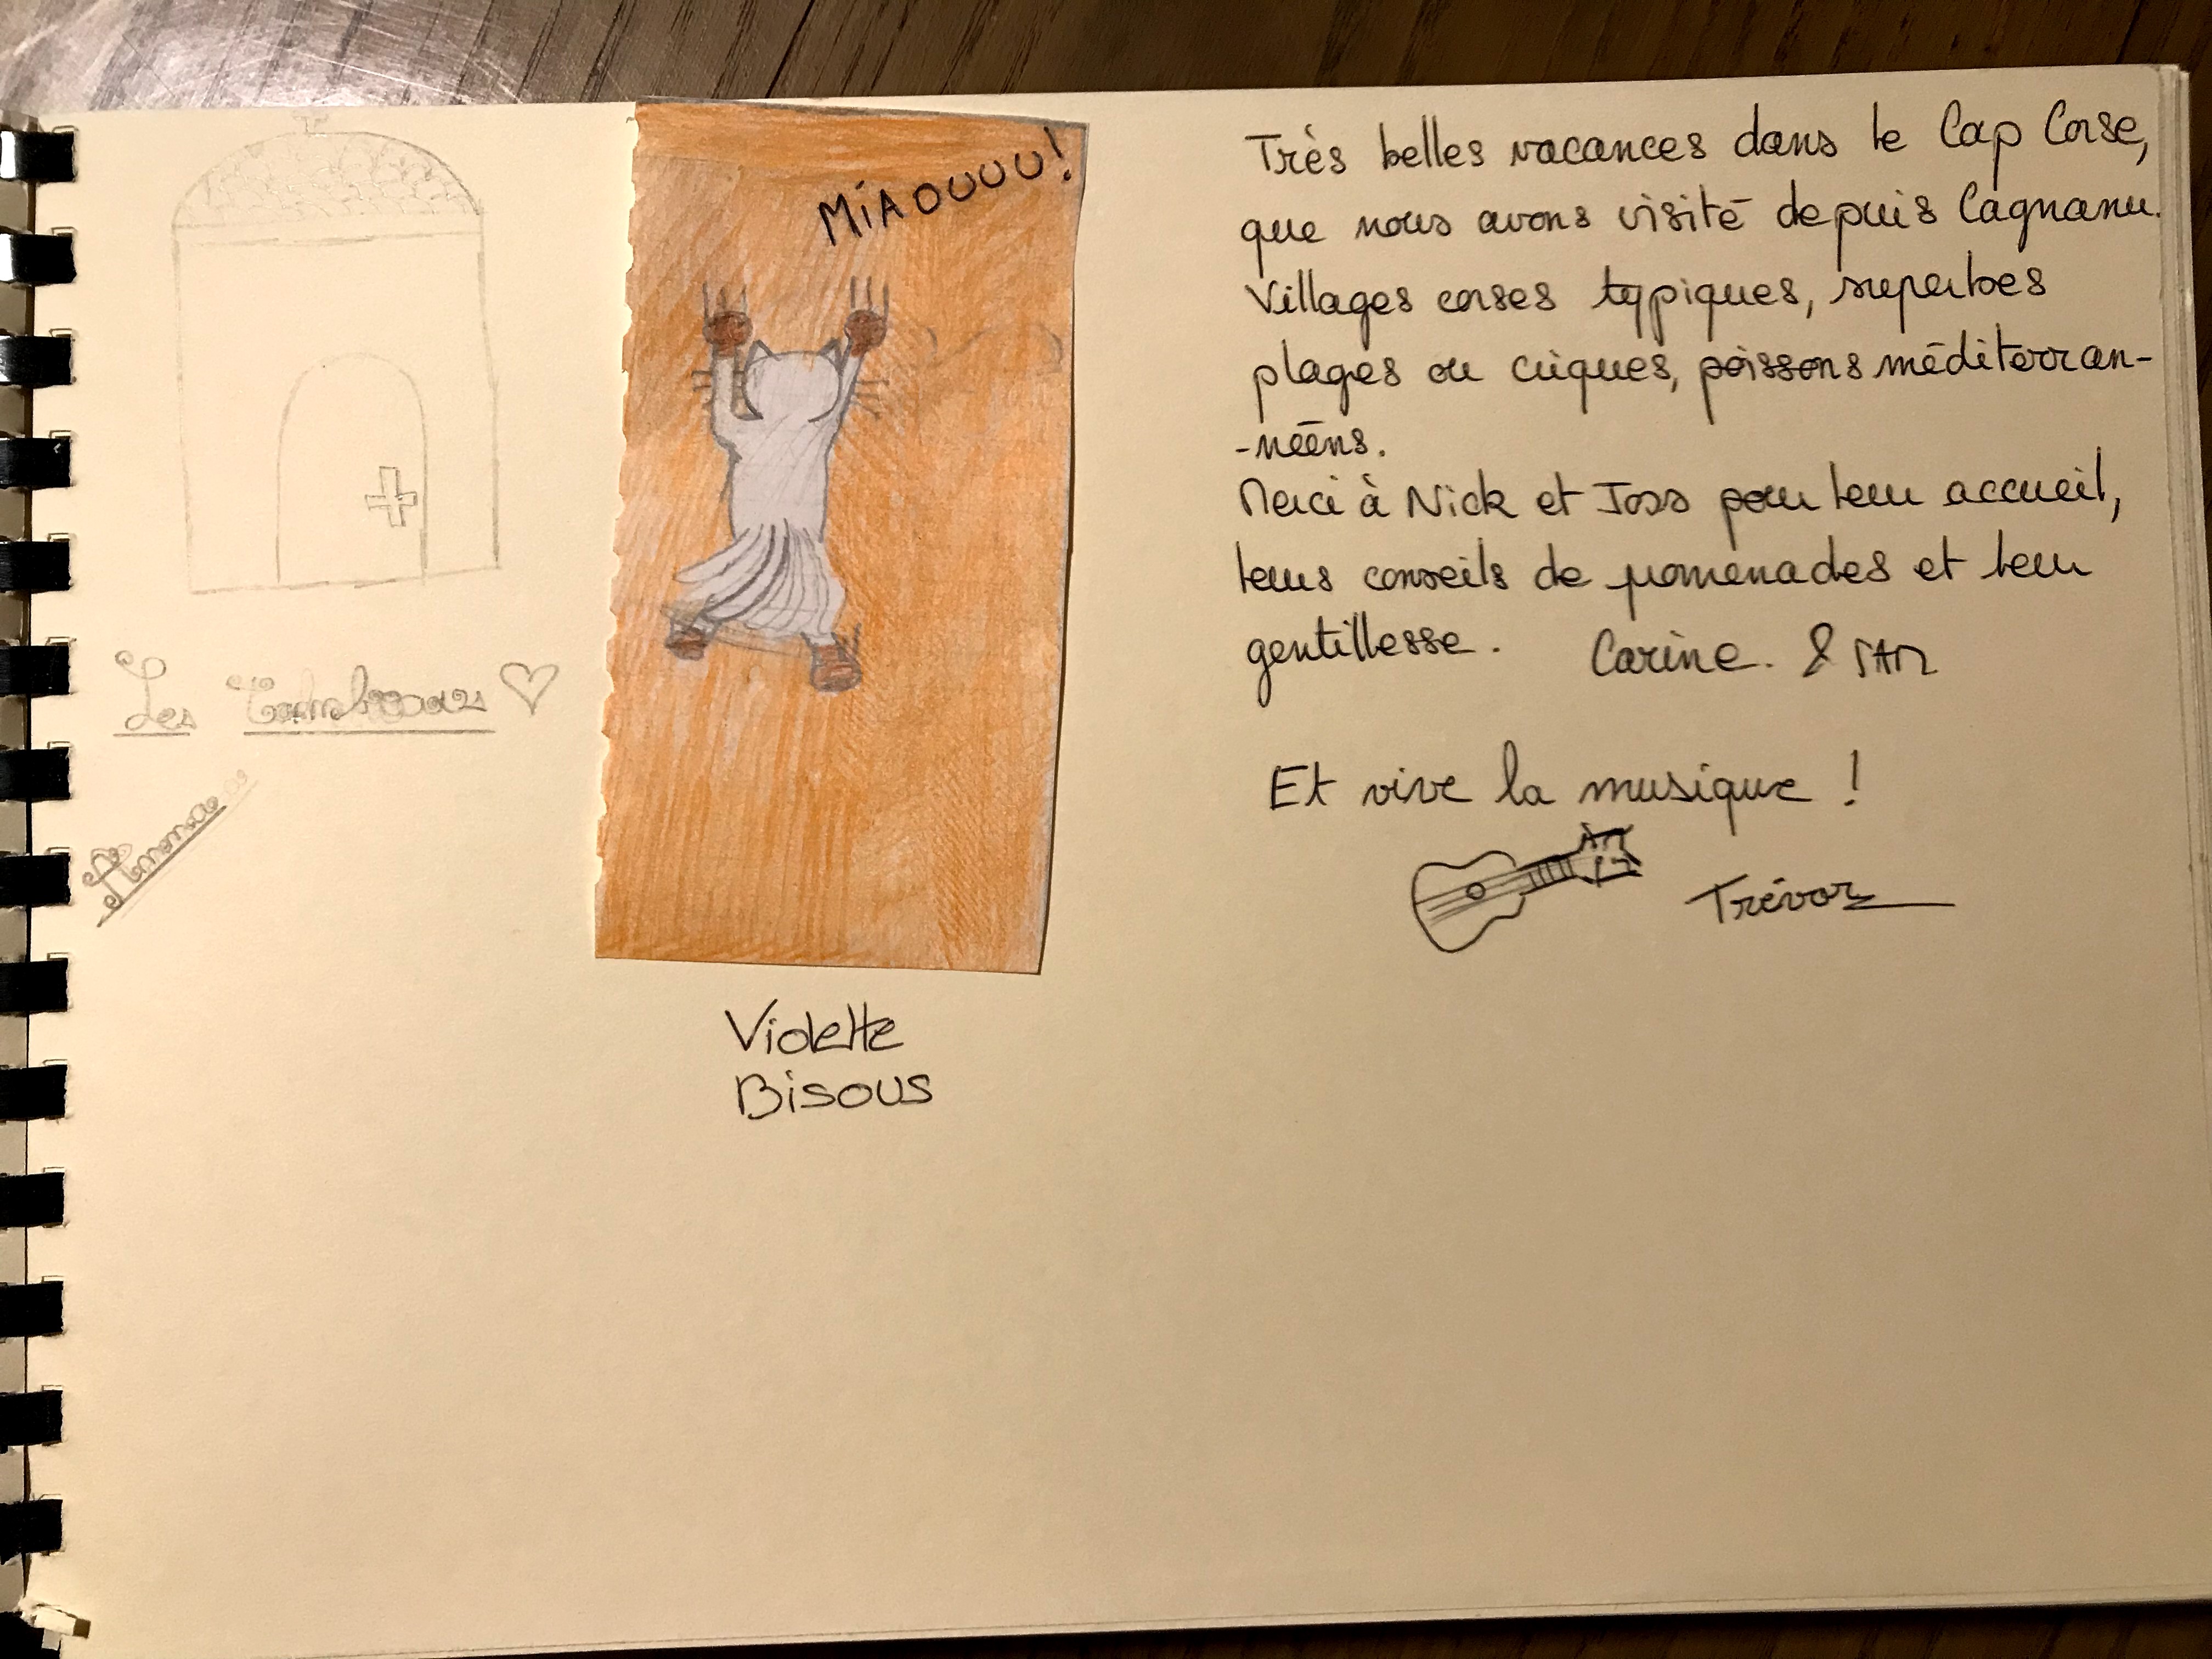 Les Tombeaux
MiAOUUU!
Violette
Bisous
Très belles vacances dans le Cap Corse,
que nous avons visité depuis Cagnanu.
Villages corses typiques, superbes
plages ou criques, poissons méditerran-
-néens.
Merci à Nick et Joss pour leur accueil,
leurs conseils de promenades et leur
gentillesse. Carine. & SAM
Et vive la musique !
Trévor